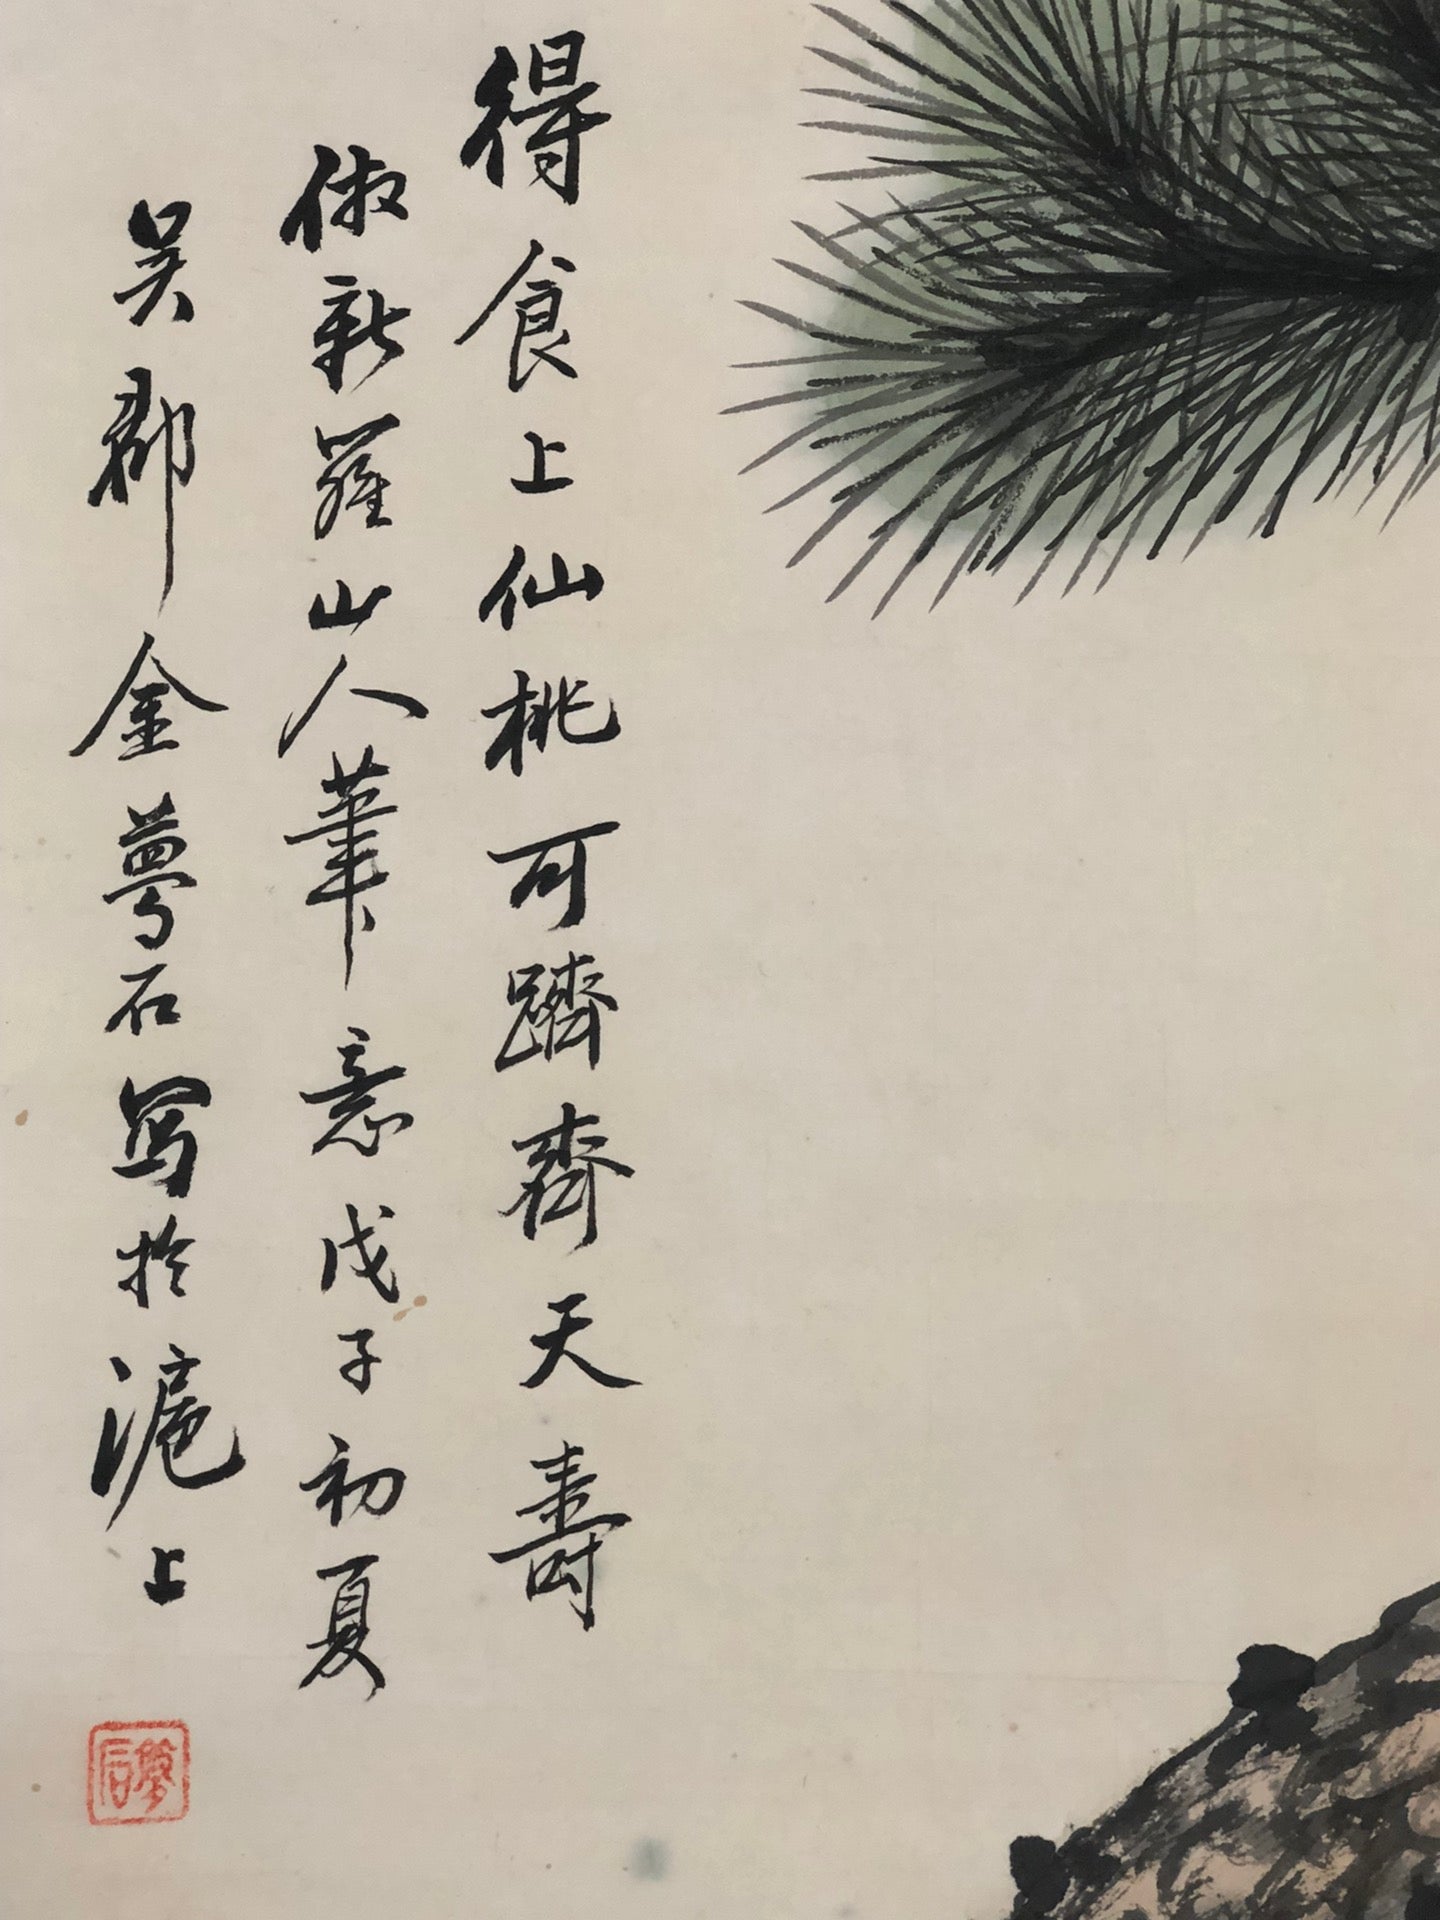 得食上仙桃可躋齊天壽
倣新羅山人筆意戊子初夏
吳郡金夢石写於滬上
夢石